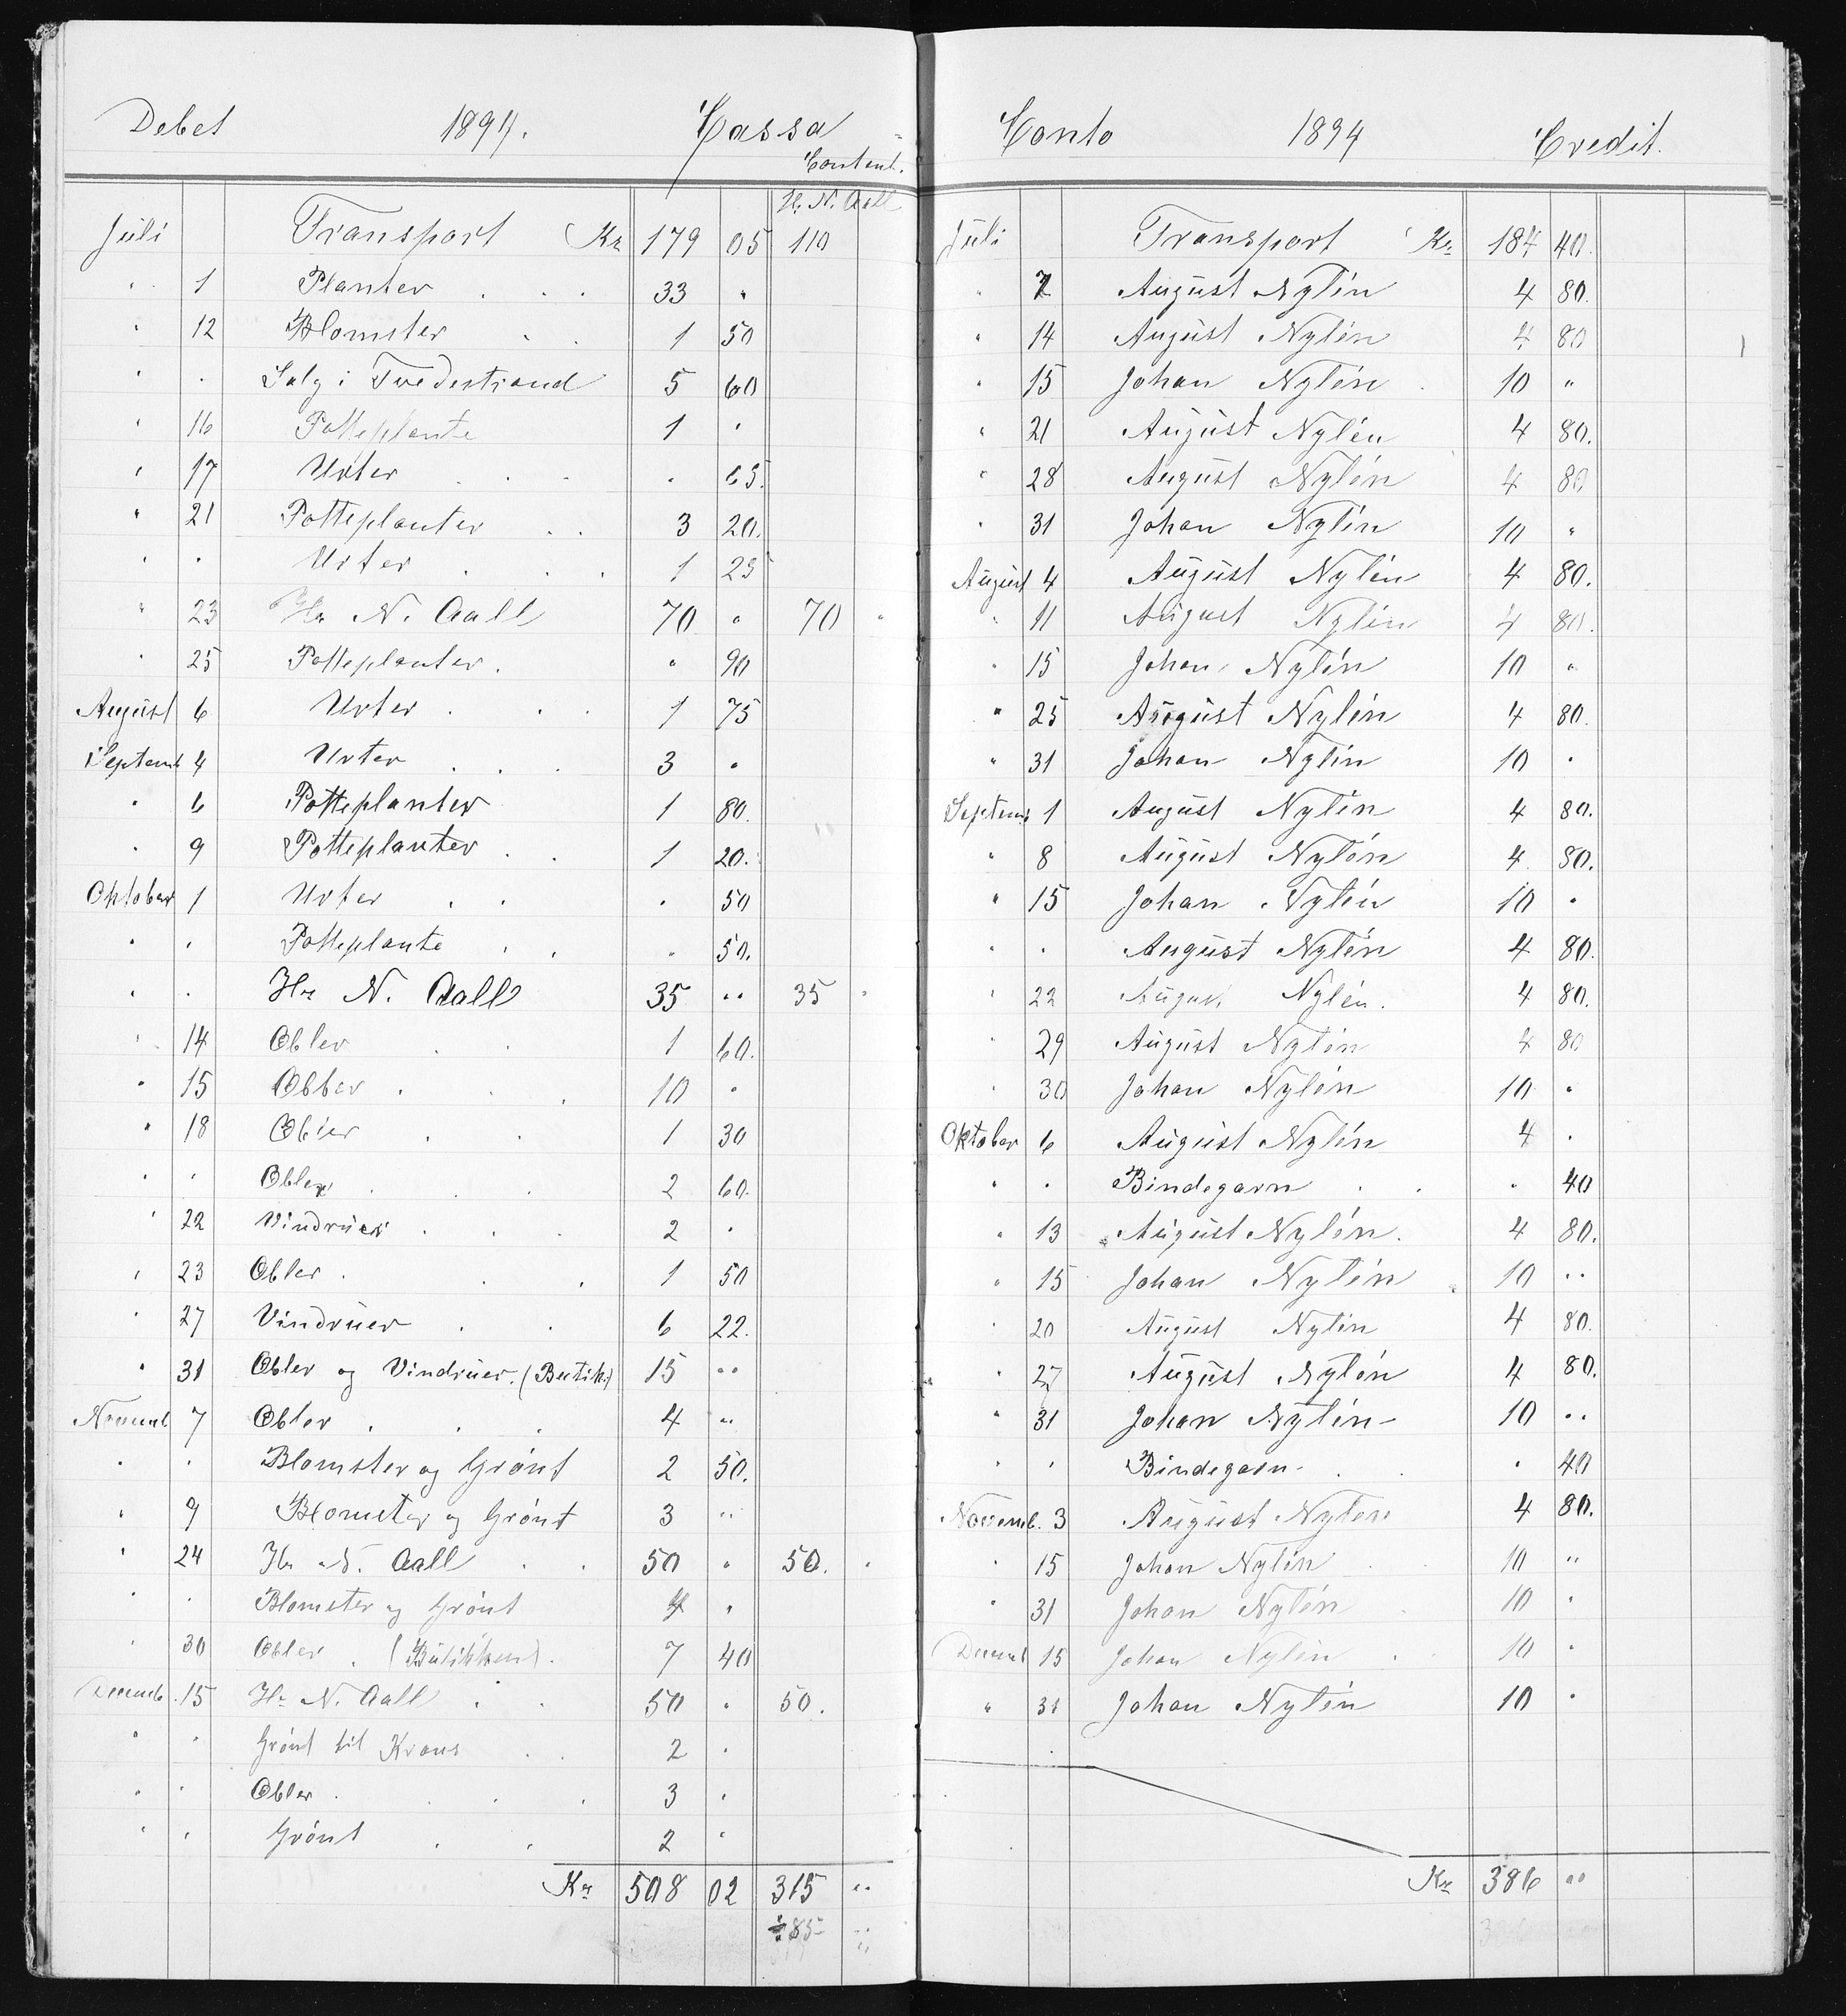 Debet 1894. Cassa
Contant.
H. N. Aall
Juli Transport Kr 179 05 110
" 1 Planter . . . 33 "
" 12 Blomster . . 1 50
" " Salg i Tvedestrand 5 60
" 16 Potteplante 1 "
" 17 Urter . . . " 65.
" 21 Potteplanter . . 3 20.
" " Urter . . . 1 25
" 23 Hr N. Aall 70 " 70 "
" 25 Potteplanter . " 90
August 6 Urter . . . 1 75
Septemb 4 Urter . . . 3 "
" 6 Potteplanter 1 80.
" 9 Potteplanter . . 1 20.
Oktober 1 Urter . . " 50
" " Potteplante . . " 50.
" " Hr N. Aall 35 " 35 "
" 14 Æbler . . 1 60.
" 15 Æbler . . . 10 "
" 18 Æbler . . 1 30
" " Æbler . . . 2 60.
" 22 Vindruer . . . 2 "
" 23 Æbler . . . 1 50
" 27 Vindruer . . 6 22.
" 31 Æbler og Vindruer. (Butik.) 15 "
Novemb 7 Æbler . . . 4 "
" " Blomster og Grønt 2 50.
" 9 Blomster og Grønt 3 "
" 24 Hr N. Aall . . 50 " 50. "
" " Blomster og Grønt 4 "
" 30 Æbler . (Butikken). 7 40
Decemb. 15 Hr N. Aall . . 50 " 50.
" " Grønt til Krans . . 2 "
" " Æbler . . . . 3 "
" " Grønt . . 2 "
Kr 508 02 315 "
÷ 85 "
Conto 1894 Credit.
Juli Transport Kr 184 40.
" 7 August Nylén 4 80.
" 14 August Nylén 4 80
" 15 Johan Nylén . 10 "
" 21 August Nylén 4 80.
" 28 August Nylén 4 80
" 31 Johan Nylén 10 "
August 4 August Nylén 4 80.
" 11 August Nylén 4 80.
" 15 Johan Nylén 10 "
" 25 August Nylén 4 80.
" 31 Johan Nylén 10 "
Septemb 1 August Nylén 4 80.
" 8 August Nylén 4 80.
" 15 Johan Nylén 10 "
" " August Nylén 4 80.
" 22 August Nylén. 4 80.
" 29 August Nylén 4 80
" 30 Johan Nylén 10 "
Oktober 6 August Nylén 4 "
" " Bindegarn . . " 40
" 13 August Nylén. 4 80.
" 15 Johan Nylén . 10 "
" 20 August Nylén 4 80.
" 27 August Nylén 4 80.
" 31 Johan Nylén 10 "
" " Bindegarn . . " 40
Novemb. 3 August Nylén 4 80.
" 15 Johan Nylén . 10 "
" 31 Johan Nylén . 10 "
Decemb 15 Johan Nylén . 10 "
" 31 Johan Nylén 10 "
Kr 386 "